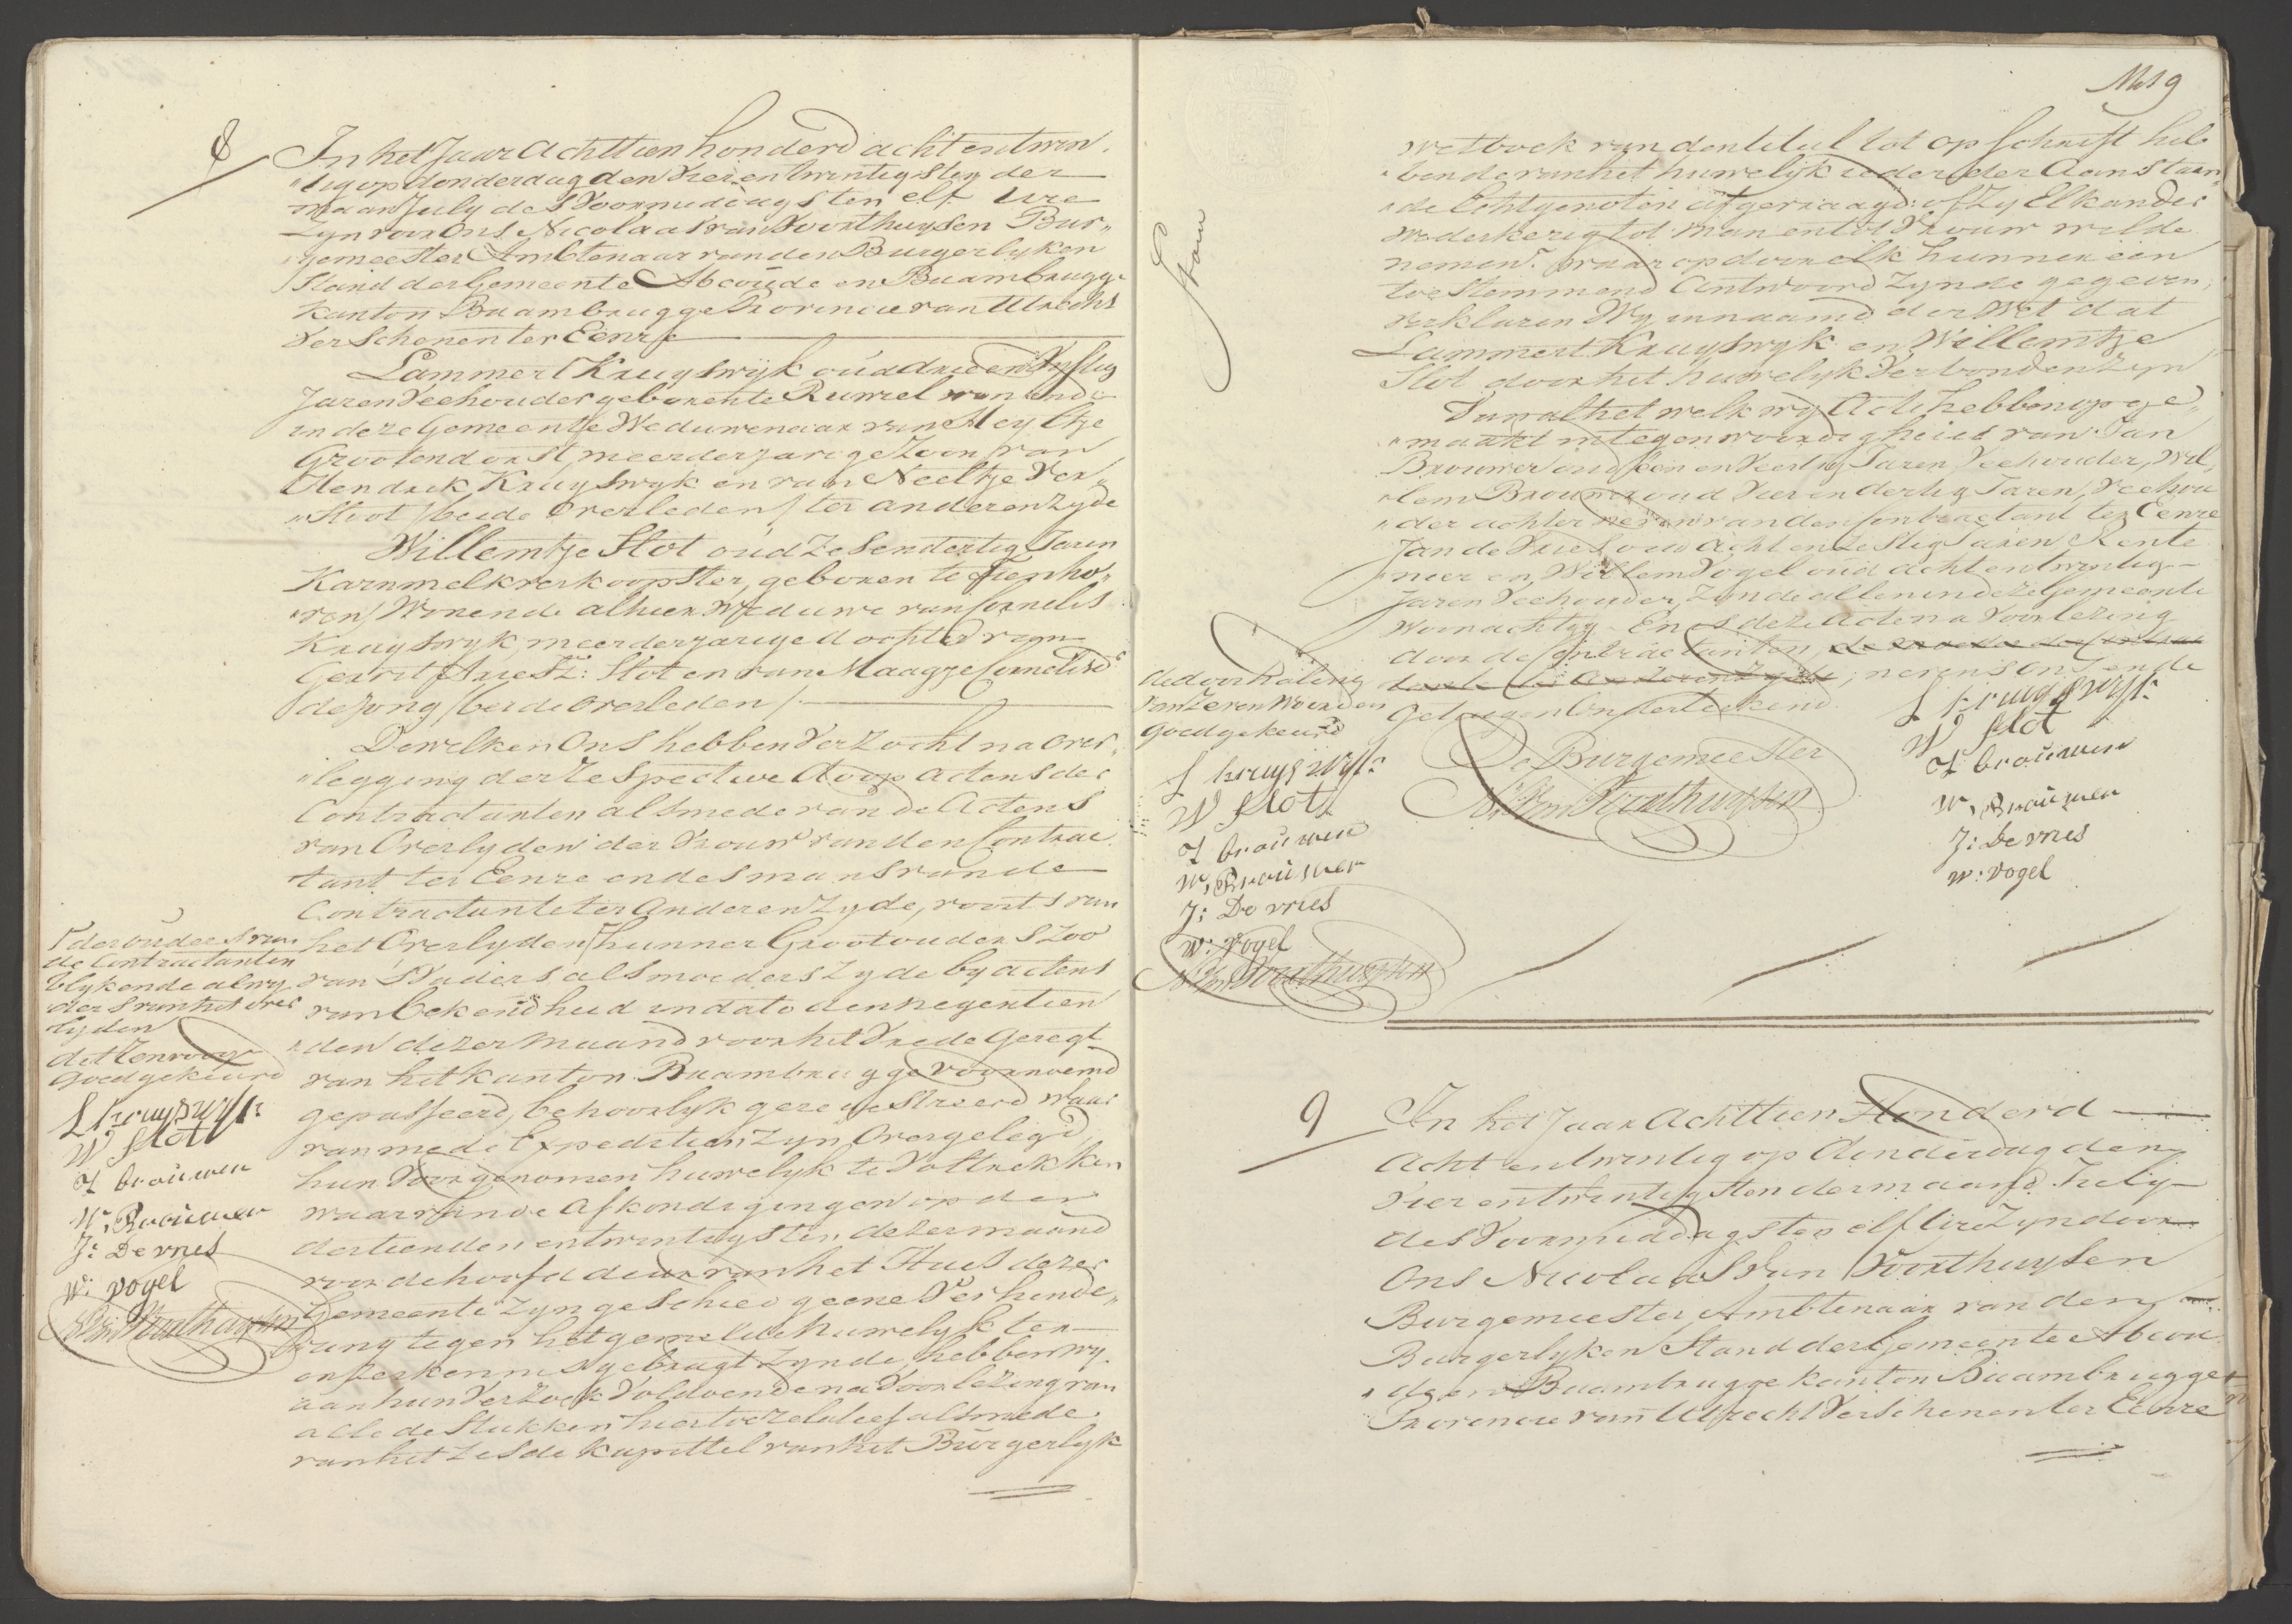 8
In het Jaar Achttien honderd acht en twin„
„tig op donderdag den vier en twintigsten der
maand July des voormiddags ten elf ure
Zyn voor ons Nicolaas van Voorthuysen Bur„
„gemeester Ambtenaar van den Burgerlyken
Stand der Gemeente Abcoude en Baambrugge
Kanton Baambrugge Provincie van Utrecht
Verschenen ter Eenre
Lammert Kruyswijk oud drie en vyftig
Jaren Veehouder geboren te Ruwiel wonende
in deze Gemeente Weduwenaar van Meyltje
Grootendorst, meerderjarige Zoon van
Hendrik Kruyswyk en van Neeltje Ver„
„Stoot /beide Overleden/ ter anderen zyde
Willemtje Slot oud Zes en dertig Jaren
Karnmelkverkoopster, geboren te Tienho„
„ven, Wonende alhier Weduwe van Cornelis
Kruyswyk meerderjarige dochter van
Gerrit Ariesz: Slot en van Maagje Cornelisd
de Jong /beide Overleden/
Dewelken Ons hebben Verzocht na over„
„legging der respective doop actens der
Contractanten alsmede van de Actens
van Overlyden der Vrouw van den Contrac„
„tant ter Eenre en des mans van de
Contractante ter Anderen Zyde, voorts van
het Overlyden hunner Grootouders zoo
van Vaders als moeders zyde by actens
van bekendheid in dato den negentien
„den dezer maand voor het Vrede Geregt
van het Kanton Baambrugge voornoemd
gepasseerd, behoorlyk geregistreerd waar
van mede Expeditien zyn Overgelegd,
hun Voorgenomen huwelyk te Voltrekken
waarvan de Afkondigingen op den
dertienden en twintigsten dezer maand
voor de hoofd deur van het Huis dezer
Gemeente zyn geschied geene Verhinde„
„ring tegen het gemelde huwelyk ter
onzer kennis gebragt zynde, hebben wy
aan hun Verzoek Voldoende na Voorlezing van
alle de Stukken hiertoe relatief alsmede
van het Zesde Kapittel van het Burgerlyk
der ouders van
de Contractanten
blykende al my
der van het over
lyden
goedgekeurd
L kruyswyk
W Slot
J brouwer
W, Brouwer
J: De vries
W: Vogel
N: Vn Voorthuysen
Wetboek van den titel tot opschrift heb
„bende van het huwelijk ieder der Aanstaan„
„de Echtgenoten afgevraagd: of Zy Elkander
Wederkerig tot man en tot Vrouw wilde
nemen? waar op door elk hunner een
toestemmend Antwoord Zynde gegeven;
verklaren Wy in naam der Wet dat
Lammert Kruyswyk en Willemtje
Slot door het huwelyk Verbonden zyn
Van al het welk wy Acte hebben opge„
„maakt in tegenwoordigheid van Jan
Brouwer oud een en Veertig Jaren Veehouder, Wil„
„lem Brouwer oud vier en dertig Jaren, Veehou
„der achter neven van den Contractant ter Eenre
Jan de Vries oud Acht en Zestig Jaren Rente
„nier en Willem Vogel oud acht en twintig
Jaren Veehouder, Zynde allen in deze Gemeente
Woonachtig – En is deze Acte na Voorlezing
door de Contractanten, nevens ons en de
Getuigen Onderteekend
De Burgemeester
N: Vn Voorthuysen
L kruyswyk
W Slot
J brouwer
W, Brouwer
J: De vries
W: Vogel
de doorhaling
van Zeven Woorden
goedgekeurd
L kruyswyk
W Slot
J brouwer
W, Brouwer
J: De vries
W: Vogel
N: Vn Voorthuysen
9
In het Jaar Achttien Honderd
Acht en twintig op donderdag den
Vier en twintigsten der maand July
des Voormiddags ten elf ure Zyn voor
Ons Nicolaas Van Voorthuysen
Burgemeester Ambtenaar van den
Burgerlyken Stand der Gemeente Abcou
„de en Baambrugge kanton Baambrugge
Provincie van Utrecht Verschenen ter Eenre